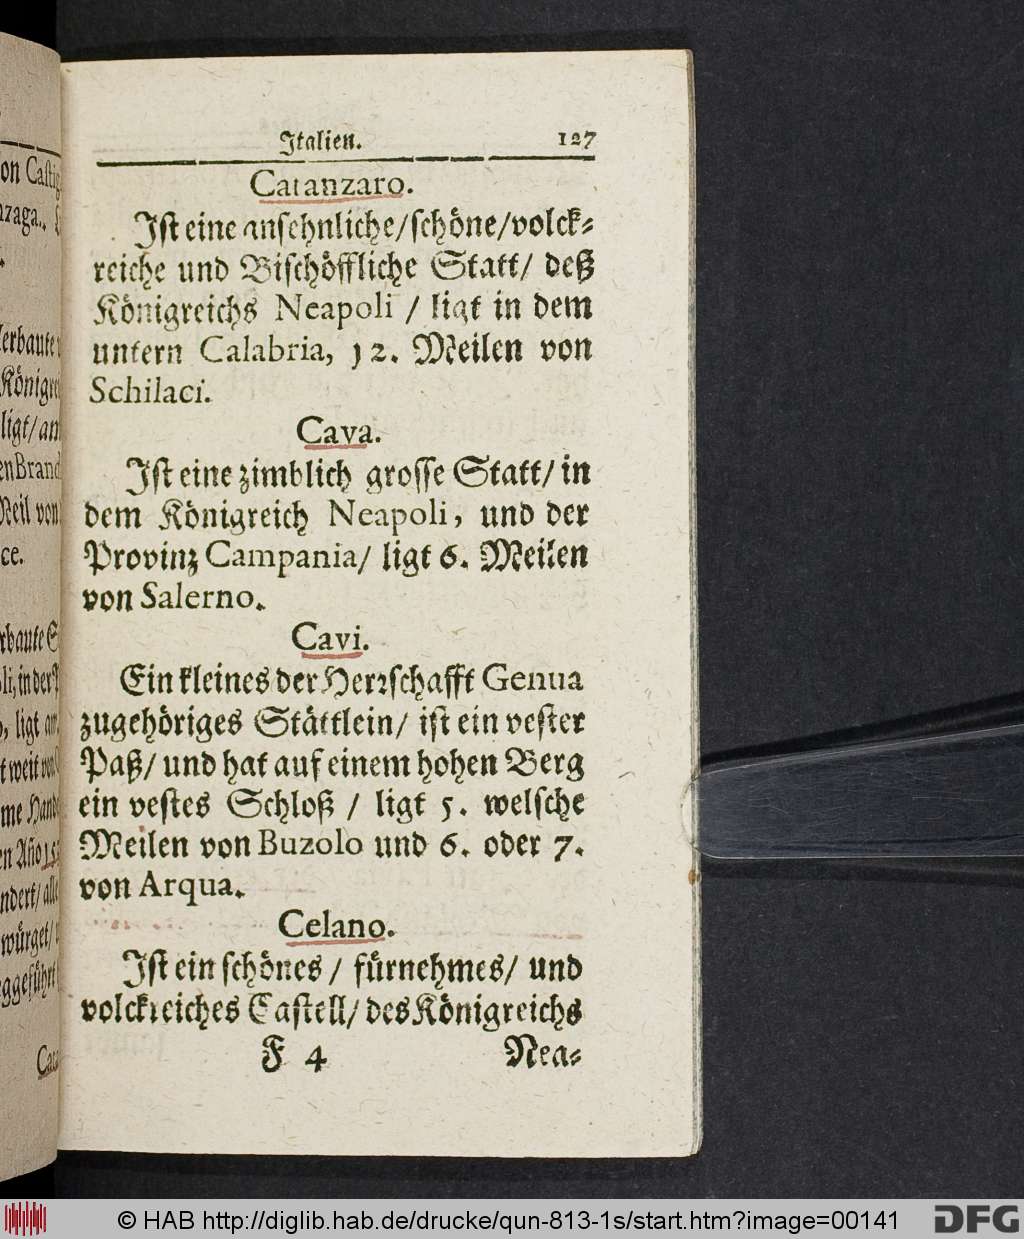 Italien. 127
Catanzaro.
Ist eine ansehnliche/schöne/volck-
reiche und Bischöffliche Statt/ deß
Königreichs Neapoli / ligt in dem
untern Calabria, 12. Meilen von
Schilaci.
Cava.
Ist eine zimblich grosse Statt/ in
dem Königreich Neapoli, und der
Provinz Campania/ ligt 6. Meilen
von Salerno.
Cavi.
Ein kleines der Herrschafft Genua
zugehöriges Stättlein/ ist ein vester
Paß/ und hat auf einem hohen Berg
ein vestes Schloß / ligt 5. welsche
Meilen von Buzolo und 6. oder 7.
von Arqua.
Celano.
Ist ein schönes / fürnehmes/ und
volckreiches Castell/ des Königreichs
F 4 Nea-
© HAB http://diglib.hab.de/drucke/qun-813-1s/start.htm?image=00141 DFG